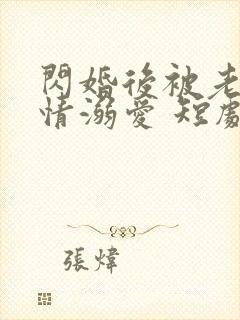 閃婚後被老
情溺愛 短劇
張煒